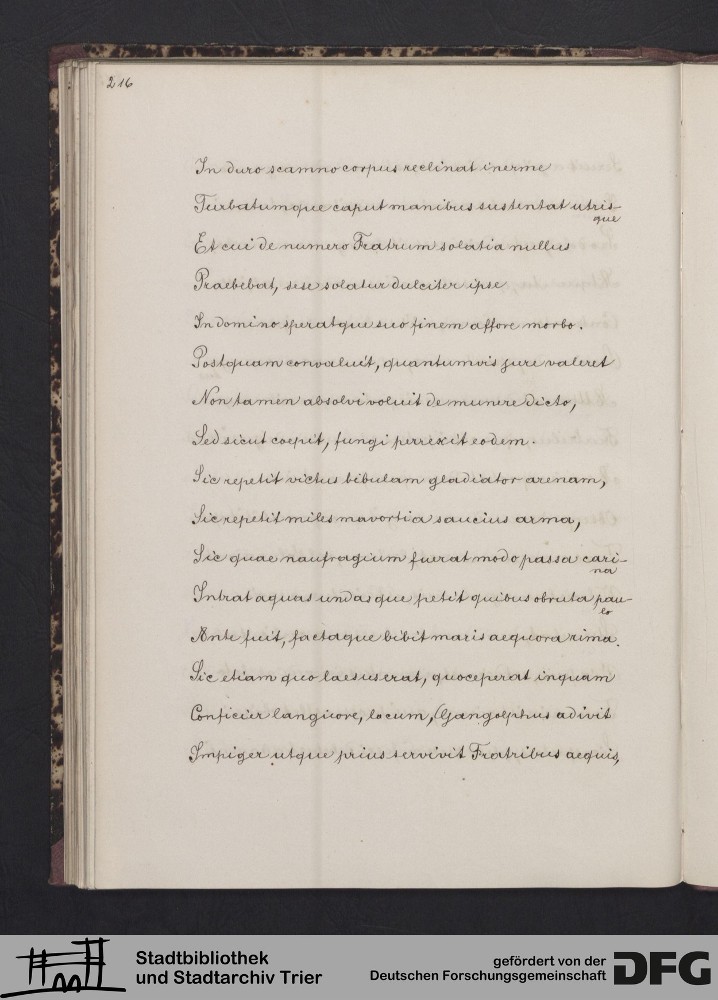 216
In duro scamno corpus reclinat inerme
Turbatumque caput manibus sustentat utris-
que
Et cui de numero Fratrum solatia nullus
Praebebat, sese solatur dulciter ipse
In domino speratque suo finem affore morbo.
Postquam convaluit, quantumvis jure valeret
Non tamen absolvi voluit de munere dicto,
Sed sicut coepit, fungi perrexit eodem.
Sic repetit victus bibulam gladiator arenam,
Sic repetit miles mavortia saucius arma,
Sic quae naufragium fuerat modo passa cari-
na
Intrat aquas undasque petit quibus obruta pau-
lo
Ante fuit, factaque bibit maris aequora rima.
Sic etiam quo laesus erat, quo ceperat inquam
Conficier languore, locum, Gangolphus adivit
Impiger utque prius servivit Fratribus aequis,
Stadtbibliothek
und Stadtarchiv Trier
gefördert von der
Deutschen Forschungsgemeinschaft
DFG